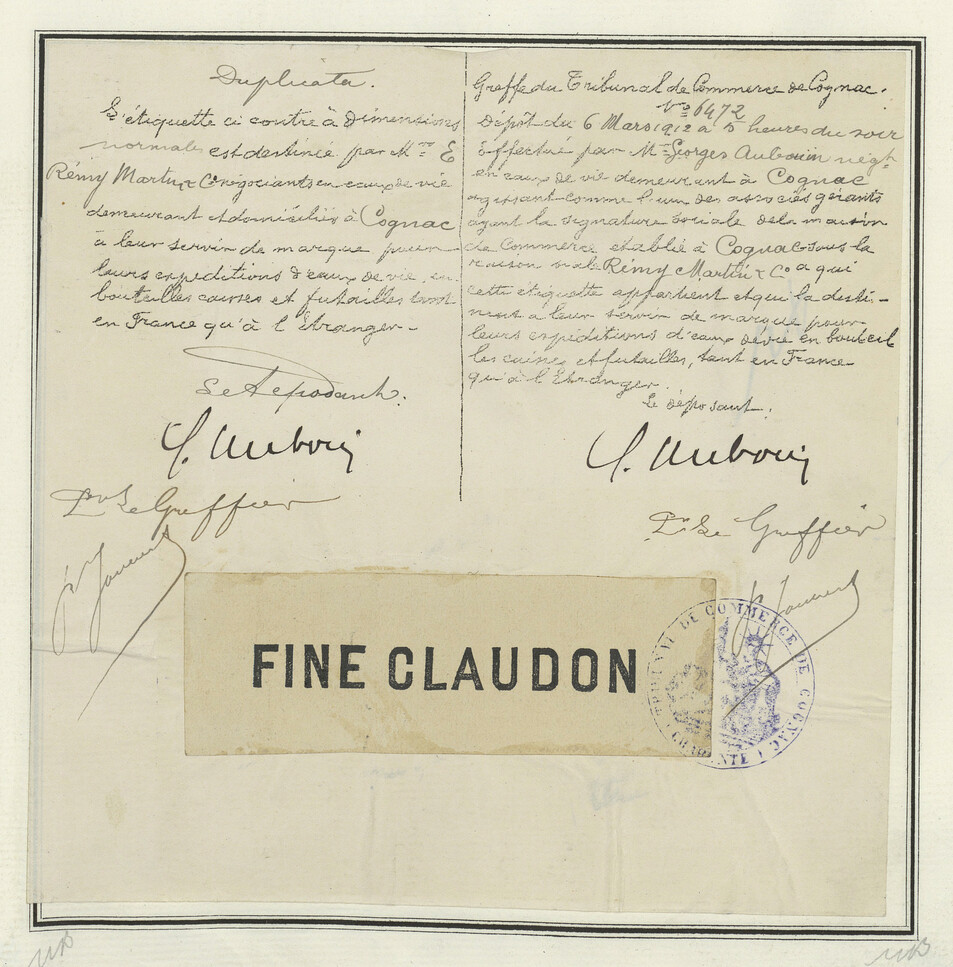 Duplicata.
L'étiquette ci contre à dimensions
normales est destinée par MM. E
Rémy Martin & Co négociants en eaux de vie
demeurant et domiciliés à Cognac
à leur servir de marque pour
leurs expéditions d'eaux de vie, en
bouteilles caisses et futailles tant
en France qu'à l'Etranger.
Le deposant.
G. Aubouin
Pr Le Greffier
Greffe du Tribunal de Commerce de Cognac.
No 6472
Dépôt du 6 Mars 1912 à 5 heures du soir
Effectué par Mr Georges Aubouin négt
en eaux de vie demeurant à Cognac
agissant comme l'un des associés gérants
ayant la signature sociale de la maison
de Commerce etablie à Cognac sous la
raison sociale Rémy Martin & Co à qui
cette étiquette appartient et qui la desti-
nent à leur servir de marque pour
leurs expéditions d'eaux de vie en bouteil
les caisses et futailles, tant en France
qu'à l'Etranger.
Le déposant.
G. Aubouin
Pr Le Greffier
FINE CLAUDON
TRIBUNAL DE COMMERCE DE COGNAC
CHARENTE